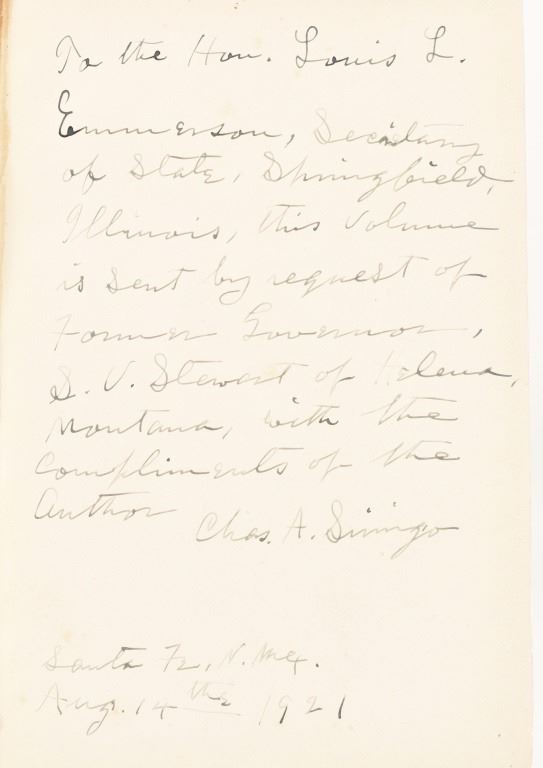 To the Hon. Louis L.
Emmerson, Secretary
of State, Springfield,
Illinois, this volume
is sent by request of
Former Governor,
S. V. Stewart of Helena,
Montana, with the
compliments of the
Author
Chas. A. Siringo
Santa Fe, N. Mex.
Aug. 14th 1921